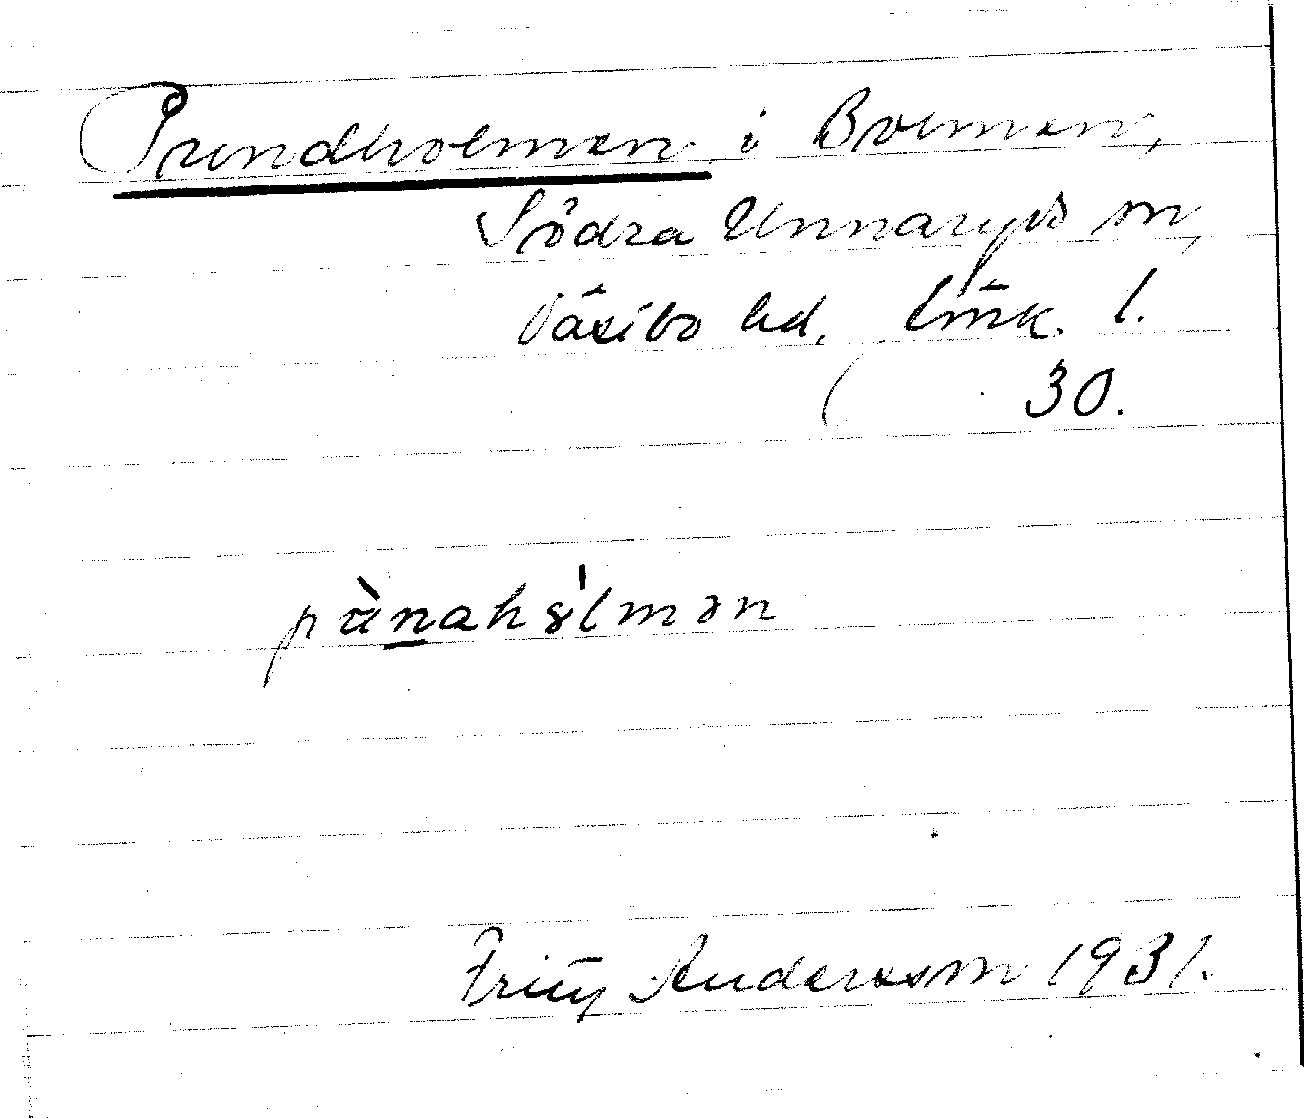 Pundholmen i Bolmen,
Södra Unnaryds sn,
Västbo hd, Jönk. l.
30.
pànahȯ́lmən
Fritz Andersson 1931.